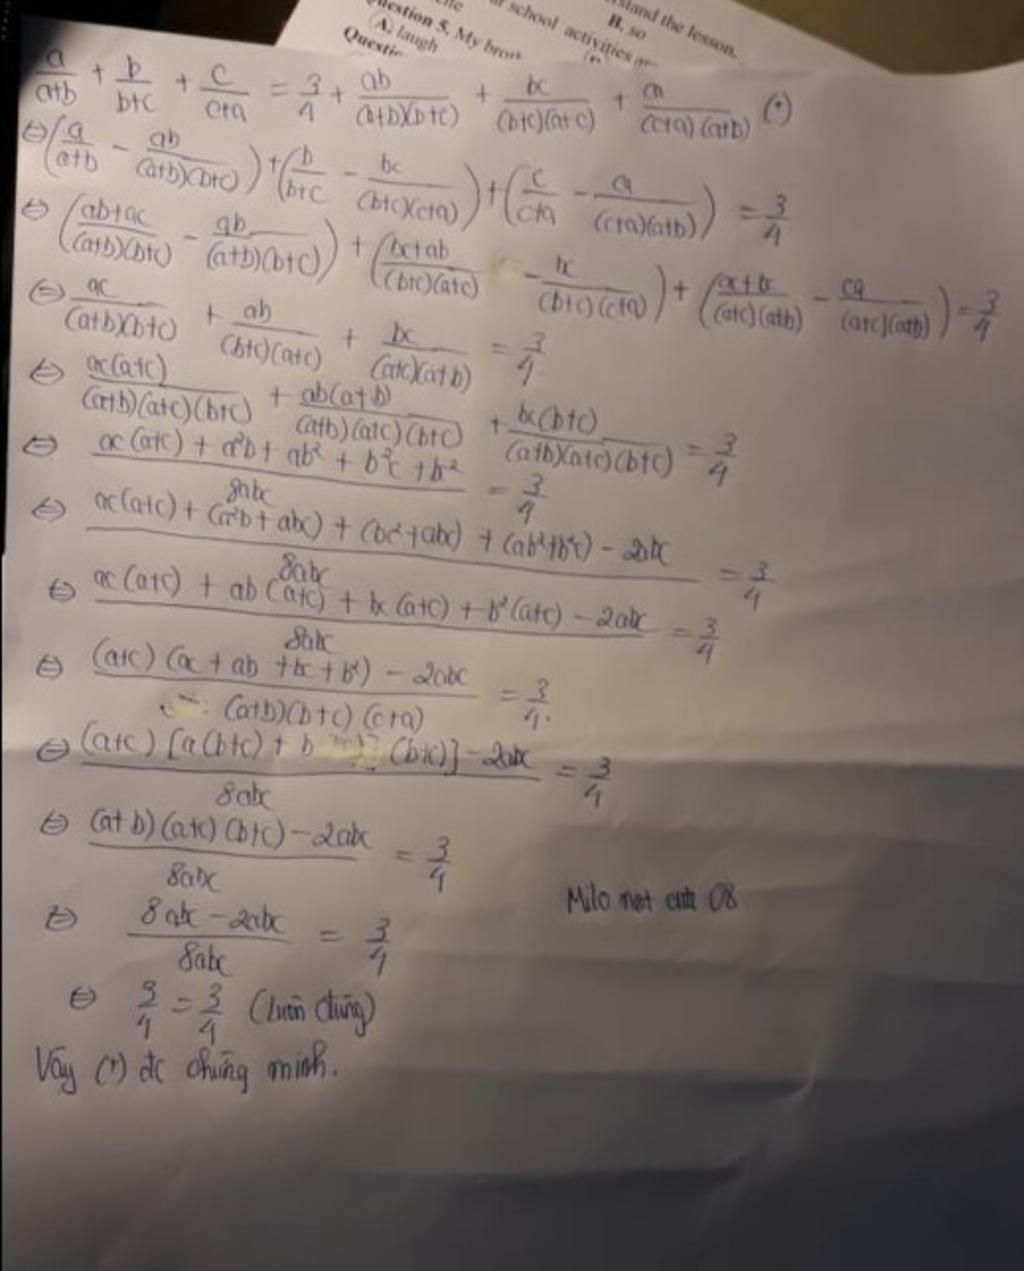 stand the lesson.
B. so
school activities
Question 5. My
A. laugh
a/(a+b) + b/(b+c) + c/(c+a) = 3/4 + ab/((a+b)(b+c)) + bc/((b+c)(a+c)) + ca/((c+a)(a+b)) (*)
⇔ (a/(a+b) - ab/((a+b)(b+c))) + (b/(b+c) - bc/((b+c)(c+a))) + (c/(c+a) - ca/((c+a)(a+b))) = 3/4
⇔ ((ab+ac)/((a+b)(b+c)) - ab/((a+b)(b+c))) + ((bc+ab)/((b+c)(a+c)) - bc/((b+c)(c+a))) + ((ac+bc)/((a+c)(a+b)) - ca/((a+c)(a+b))) = 3/4
⇔ ac/((a+b)(b+c)) + ab/((b+c)(a+c)) + bc/((a+c)(a+b)) = 3/4
⇔ ac(a+c)/((a+b)(a+c)(b+c)) + ab(a+b)/((a+b)(a+c)(b+c)) + bc(b+c)/((a+b)(a+c)(b+c)) = 3/4
⇔ (ac(a+c) + a²b + ab² + b²c + bc²)/8abc = 3/4
⇔ (ac(a+c) + (a²b+abc) + (bc²+abc) + (ab²+b²c) - 2abc)/8abc = 3/4
⇔ (ac(a+c) + ab(a+c) + bc(a+c) + b²(a+c) - 2abc)/8abc = 3/4
⇔ ((a+c)(ac + ab + bc + b²) - 2abc)/((a+b)(b+c)(c+a)) = 3/4.
⇔ ((a+c)[a(b+c) + b (b+c)] - 2abc)/8abc = 3/4
⇔ ((a+b)(a+c)(b+c) - 2abc)/8abc = 3/4
Milo not 08
⇔ (8abc - 2abc)/8abc = 3/4
⇔ 3/4 = 3/4 (luôn đúng)
Vậy (*) đc chứng minh.